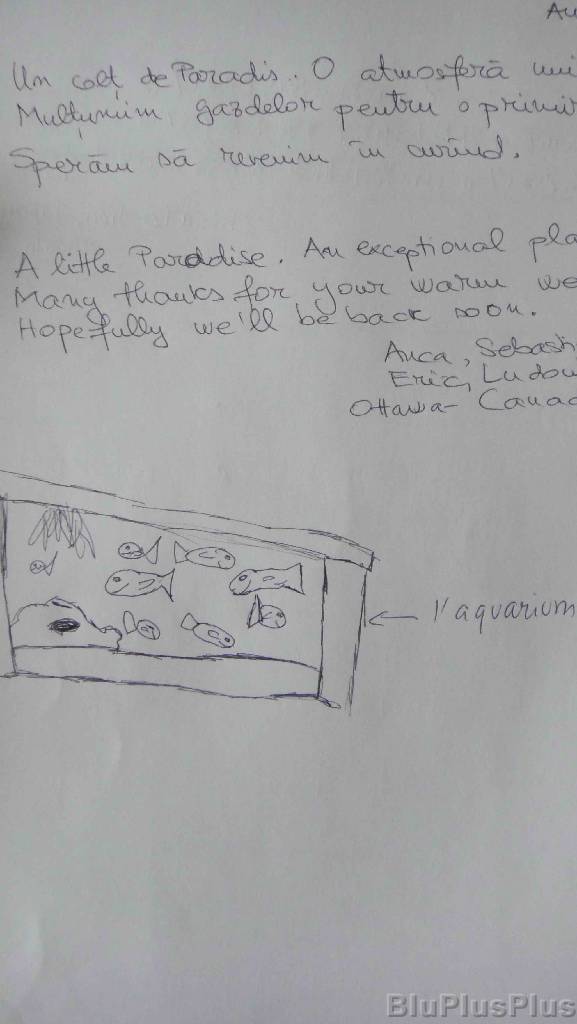 Au
Un colț de Paradis. O atmosferă uni
Mulțumim gazdelor pentru o primir
Sperăm să revenim în curînd.
A little Paradise. An exceptional pla
Many thanks for your warm we
Hopefully we'll be back soon.
Anca, Sebasti
Eric, Ludov
Ottawa - Canad
l'aquarium
BluPlusPlus